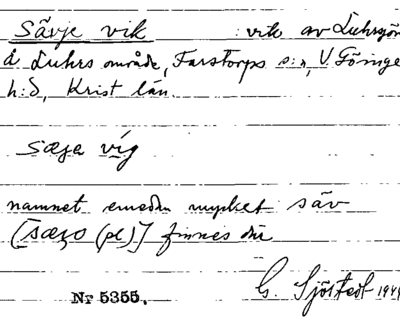 Sävje vik : vik av Luhrsjön
å Luhrs område, Farstorps s:n, V. Göinge
h:d, Krist län.
sæja vig
namnet emedan mycket säv
[sæzo (pl)] finnes där
Nr 5355.
G. Sjöstedt 1944